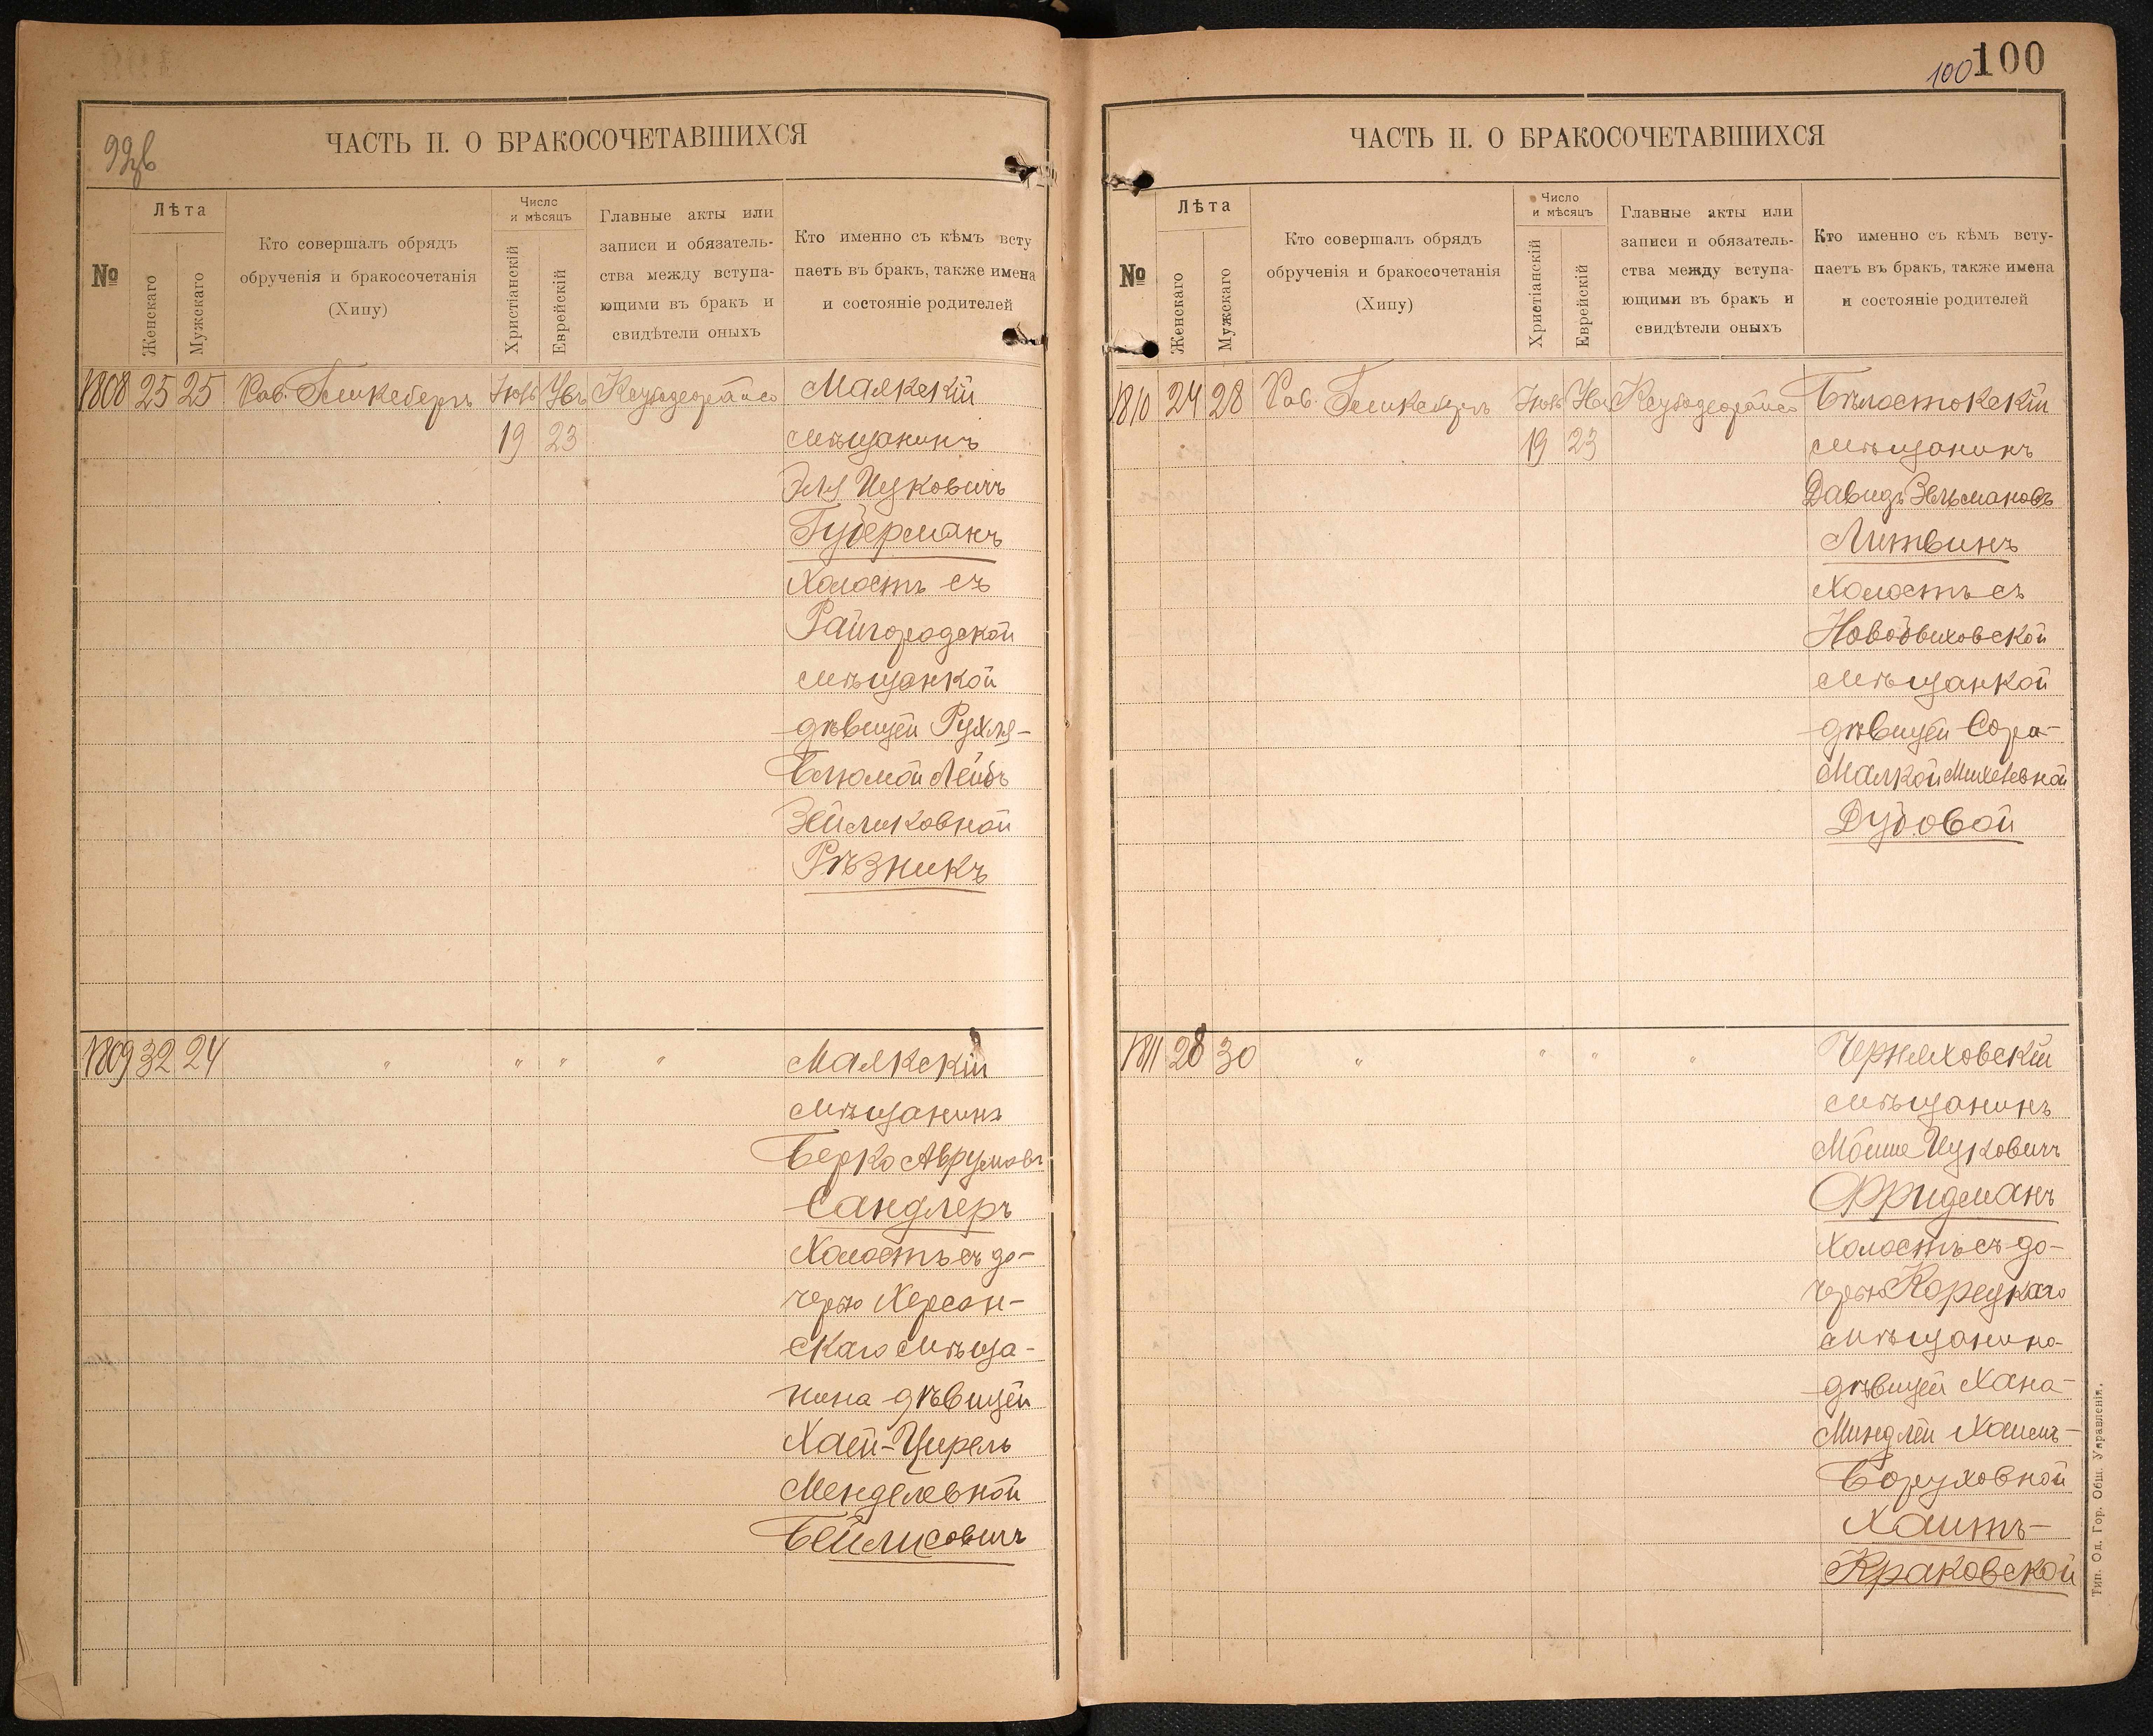 99об
ЧАСТЬ II. О БРАКОСОЧЕТАВШИХСЯ
№
Лѣта
Женскаго
Мужскаго
Кто совершалъ обрядъ
обрученія и бракосочетанія
(Хипу)
Число
и мѣсяцъ
Христіанскій
Еврейскій
Главные акты или
записи и обязатель-
ства между вступа-
ющими въ бракъ и
свидѣтели оныхъ
Кто именно съ кѣмъ всту
паетъ въ бракъ, также имена
и состояніе родителей
1808 25 25 Рав. Маякскій
19 23 мѣщанинъ
Эля Ицковичъ
Губерманъ
холостъ съ
Райгородской
мѣщанкой
дѣвицей Рухля-
Блюмой Лейбъ
Зейликовной
Рѣзникъ
1809 32 24 " " " " Маякскій
мѣщанинъ
Берко Аврумовъ
Сандлеръ
холостъ съ до-
черью Херсон-
скаго мѣща-
нина дѣвицей
Хаей-Цирель
Менделевной
Бейлисовичъ
100 100
ЧАСТЬ II. О БРАКОСОЧЕТАВШИХСЯ
№
Лѣта
Женскаго
Мужскаго
Кто совершалъ обрядъ
обрученія и бракосочетанія
(Хипу)
Число
и мѣсяцъ
Христіанскій
Еврейскій
Главные акты или
записи и обязатель-
ства между вступа-
ющими въ бракъ и
свидѣтели оныхъ
Кто именно съ кѣмъ всту-
паетъ въ бракъ, также имена
и состояніе родителей
1810 24 28 Рав. Бѣлостокскій
19 23 мѣщанинъ
Давидъ Зельмановъ
Литвинъ
холостъ съ
Новобыховской
мѣщанкой
дѣвицей Сора-
Малкой Михелевной
Дубовой
1811 28 30 " " " " Черняховскій
мѣщанинъ
Мойше Ицковичъ
Фридманъ
холостъ съ до-
черью Корецкаго
мѣщанина
дѣвицей Хана-
Миндлей Хаимъ-
Боруховной
Хаитъ-
Краковской
Тип. Од. Гор. Общ. Управленія.